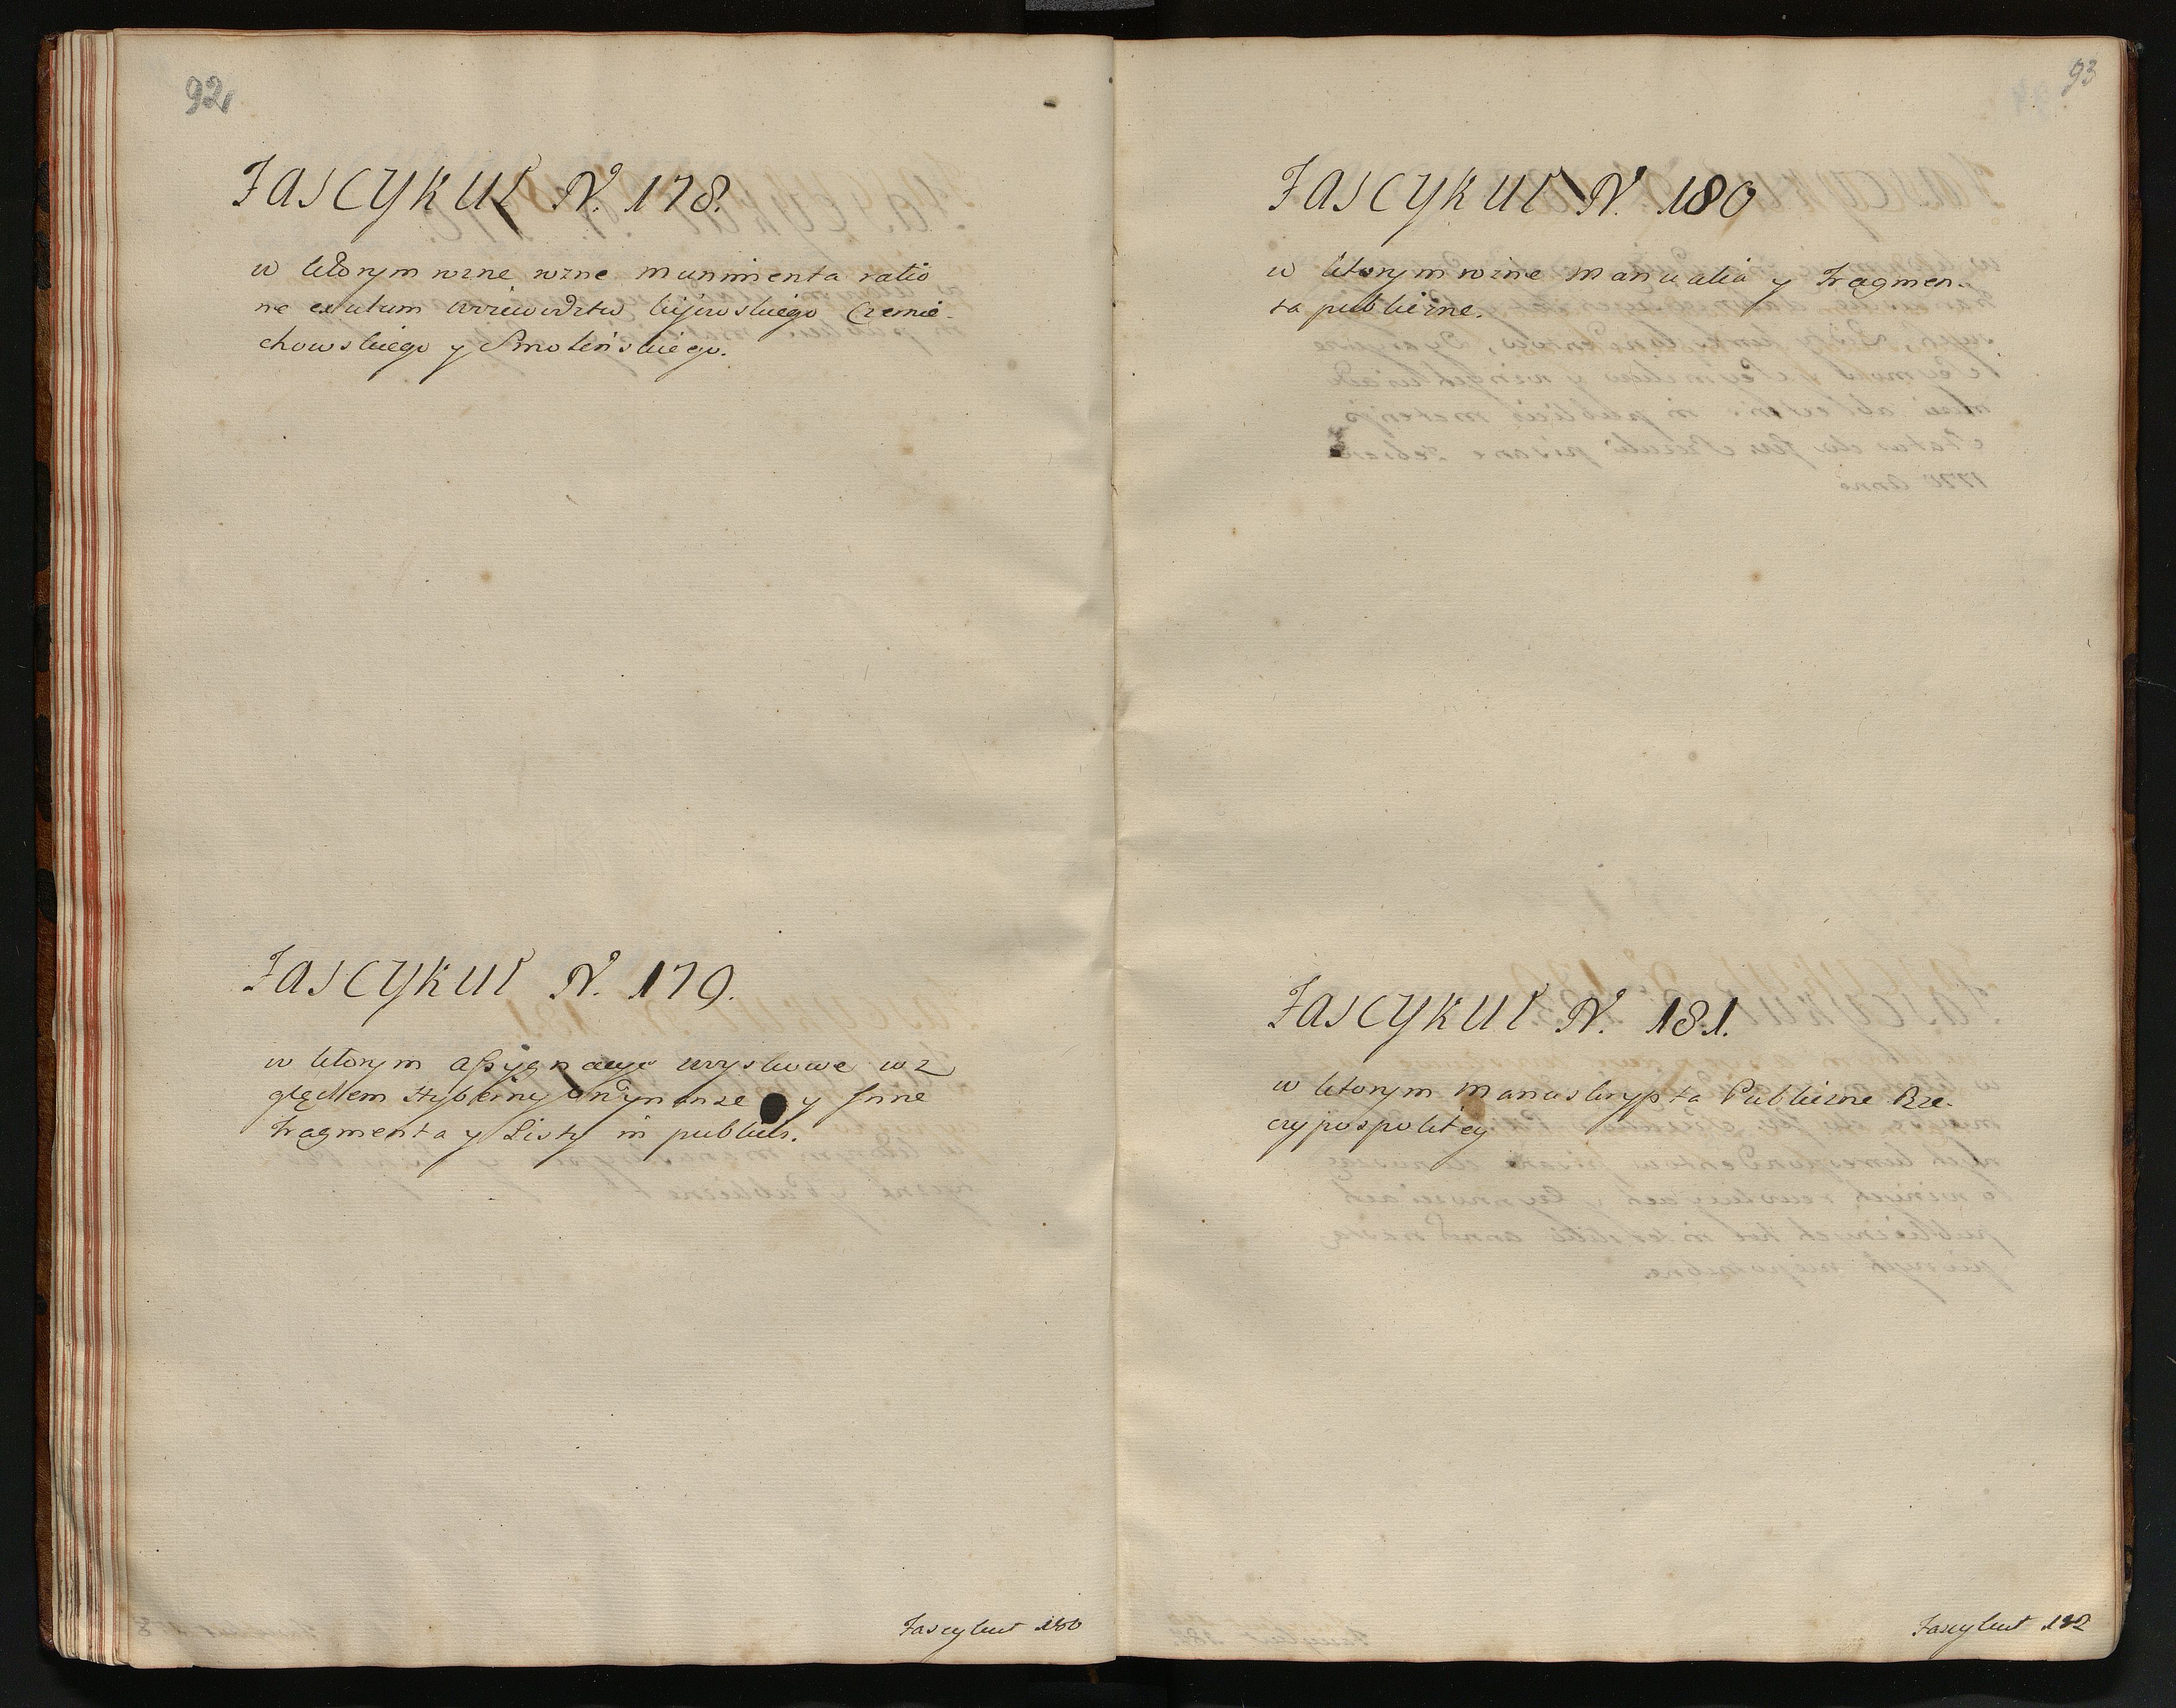 92
Fascykuł N. 178.
w ktorym rozne rozne munimenta ratio
ne exulum woiewodztw kijowskiego Czernie-
chowskiego y Smoleńskiego.
Fascykuł N. 179.
w ktorym assygnacye woyskowe wz
ględem Hyberny Ordynanse y Jnne
Fragmenta y Listy in publicis.
Fascykuł 180
93
Fascykuł N. 180
w ktorym rozne Manualia y Fragmen-
ta publiczne.
Fascykuł N. 181.
w ktorym Manuskrypta Publiczne Rze-
czypospolitey
Fascykuł 182